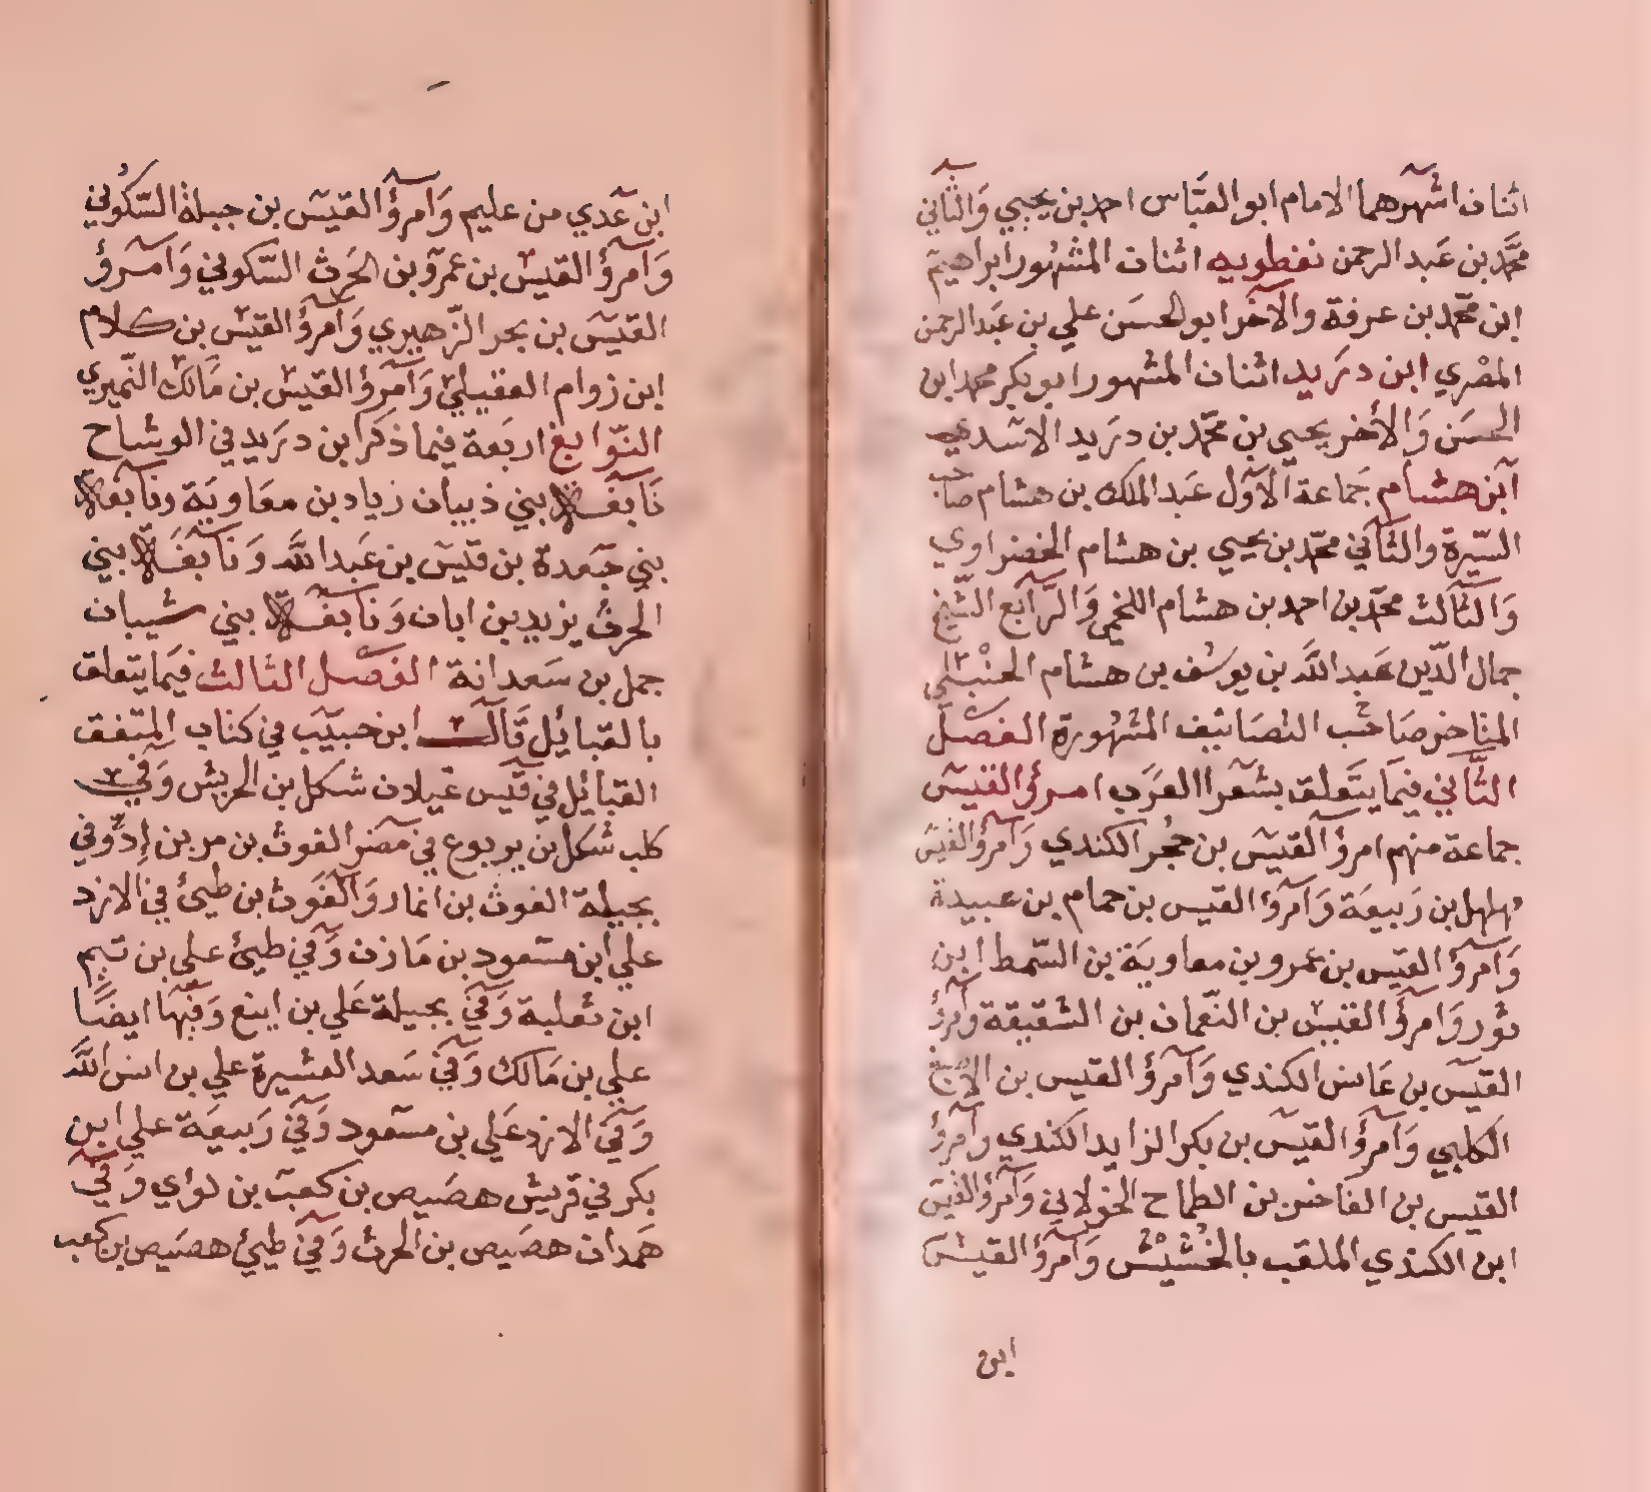 اثنان اشهرهما الامام ابو العباس احمد بن يحيي وَالثاني
محمَّد بن عَبد الرحمن نفطويه اثنان المشهُور ابراهيم
ابن محمّد بن عرفة والآخر ابو الحسَن علي بن عَبد الرحمن
المصْري ابن دريَد اثنان المشهور ابو بكر محمد ابن
الحسَن وَالأخر يحيي بن محمّد بن دريَد الاسَدي
ابن هشام جَماعة الأوّل عَبد الملك بن هشام صاحب
السّيرة والثاني محمّد بن يحيي بن هشام الخضراوي
وَالثالث محمّد بن احمد بن هشام اللخمي وَالرّابع الشّيخ
جمال الدّين عَبد اللَّه بن يوسُف بن هشام الحنْبَلي
المتاخر صَاحب التصَانيف المشهُورة الفصل
الثَّاني فيمَا يتَعلق بشعرا العرَب امرؤ القيس
جماعة منهم امرؤ القيس بن حجُر الكندي وَامرؤ القيس
مهلهل بن رَبيعَة وَامرؤ القيس بن حمام بن عبيدة
وَامرؤ القيس بن عمرو بن معاويَة بن السّمط ابن
ثور وَامرؤ القيس بن النّعمان بن الشقيقة وَامرؤ
القيسَ بن عَابس الكندي وَامرؤ القيس بن الاصبغ
الكلبي وَامرؤ القيسَ بن بكر الزايد الكندي وَامرؤ
القيس بن الفاخر بن الطماح الخولاني وَامرؤ القيس
ابن الكندي الملقب بالخُشيْش وَامرؤ القيسَ
ابن
ابن عَدي من عليم وَامرؤ القيسَ بن جبلة السّكُوني
وَامرؤ القيس بن عمرو بن الحَرث السّكوني وَامرؤ
القيسَ بن بحر الزّهيري وَامرؤ القيسَ بن كلام
ابن زوام العقيلي وَامرؤ القيس بن مَالك النّميري
النّوابغ اربَعة فيما ذكر ابن دريَد في الوشاح
نَابغة بني ذبيان زياد بن معَاويَة ونابغة
بني جَعدة بن قيسَ بن عَبد اللَّه وَنَابغَة بني
الحرث يزيد بن ابان وَنابغة بني شيبان
جمل بن سَعدانة الفصل الثالث فيمَا يتعلق
بالقبايُل قَال ابن حبيَب في كتاب المتفق
القبائل في قيَس غيلان شكل بن الحريش وَفي
كلب شكل بن يربوع في مضر الغوث بن مر بن اِدّ وفي
بجيلة الغوث بن انمار وَالغَوث بن طيئ في الازد
علي ابن مسَعود بن مَازن وَفي طيئ علي بن تميم
ابن ثعلبة وَفي بجيلة عَلي بن اينع وَفيهَا ايضًا
علي بن مَالك وَفي سَعد العشيرة علي بن انس اللَّه
وَفي الازد عَلي بن مسَعود وَفي رَبيعَة علي ابن
بكر في قريش هصَيص بن كعبَ بن لواي وَفي
همَدان هصَيص بن الحرث وَفي طيئ هصَيص بن كعب